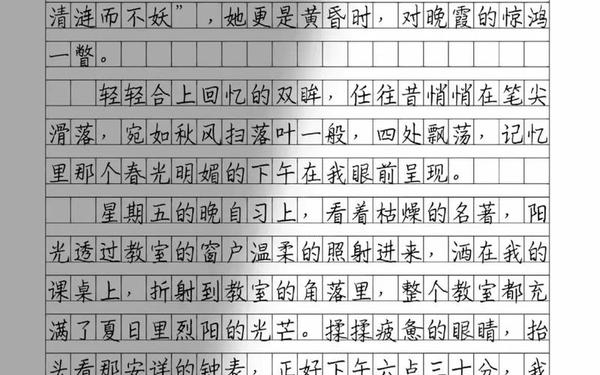 清涟而不妖”，她更是黄昏时，对晚霞的惊鸿
一瞥。
轻轻合上回忆的双眸，任往昔悄悄在笔尖
滑落，宛如秋风扫落叶一般，四处飘荡，记忆
里那个春光明媚的下午在我眼前呈现。
星期五的晚自习上，看着枯燥的名著，阳
光透过教室的窗户温柔的照射进来，洒在我的
课桌上，折射到教室的角落里，整个教室都充
满了夏日里烈阳的光芒。揉揉疲惫的眼睛，抬
头看那安详的钟表，正好下午六点三十分，我